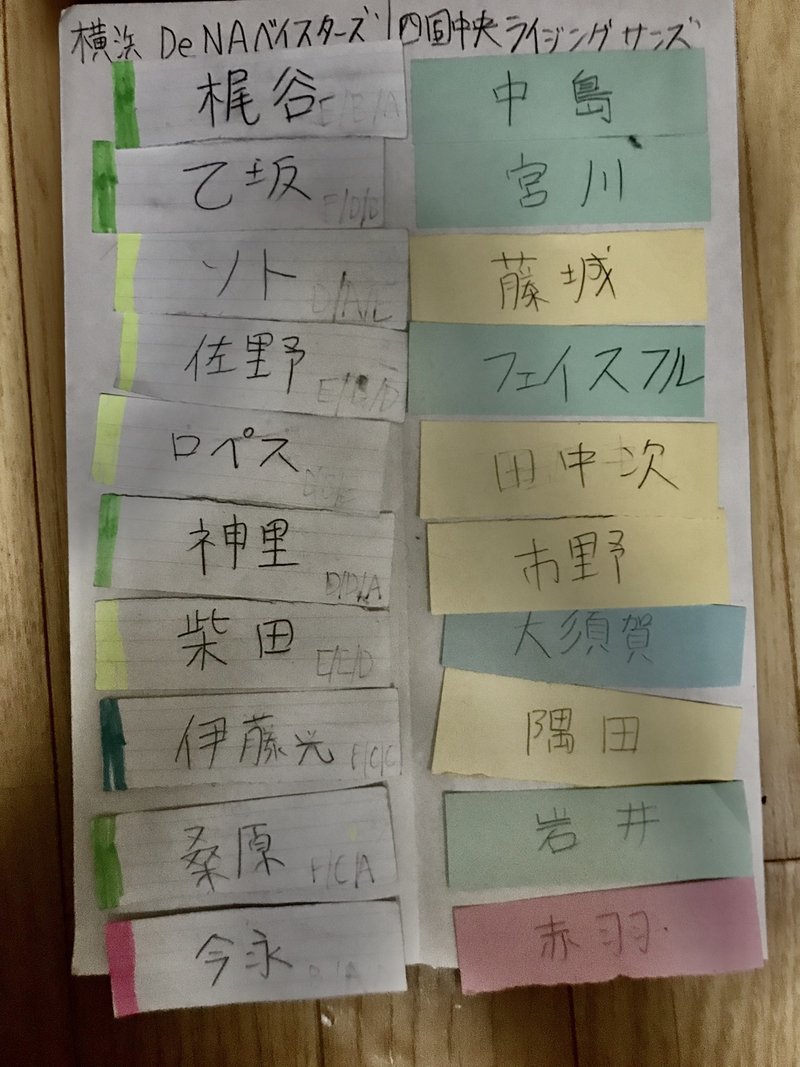 横浜 DeNAベイスターズ 四国中央ライジングサンズ
梶谷 E/B/A 中島
乙坂 E/D/D 宮川
ソト 藤城
佐野 フェイスフル
ロペス 田中次
神里 D/D/A 市野
柴田 E/E/D 大須賀
伊藤光 F/C/C 隅田
桑原 F/C/A 岩井
今永 赤羽